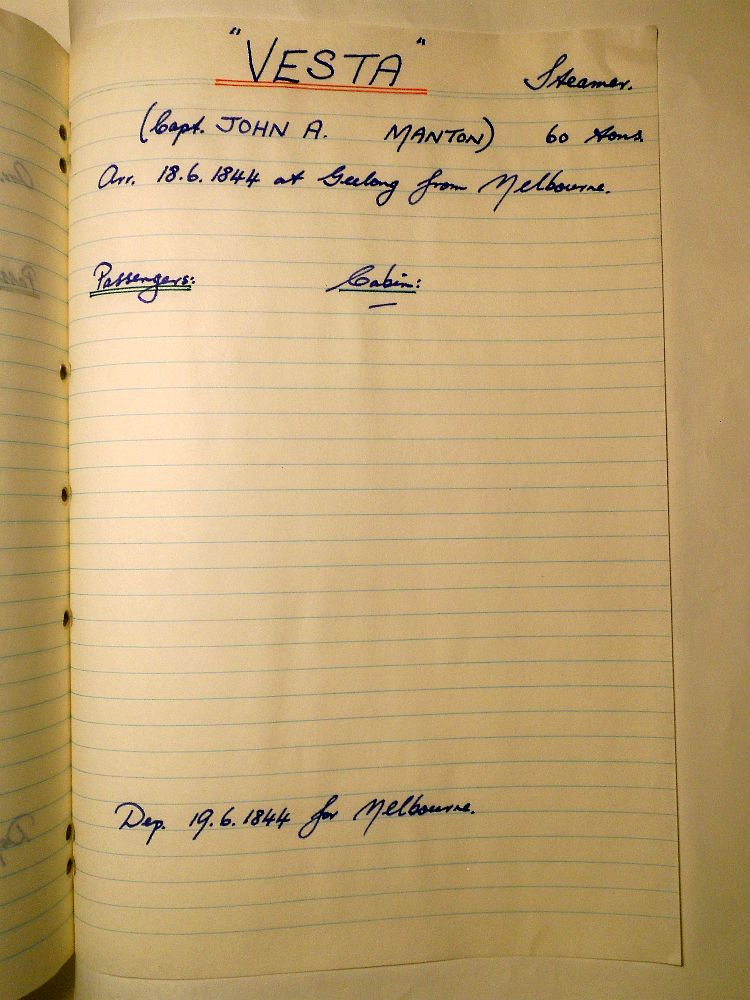 "VESTA" Steamer.
(Capt. JOHN A. MANTON) 60 tons.
Arr. 18.6.1844 at Geelong from Melbourne.
Passengers: Cabin:
Dep. 19.6.1844 for Melbourne.